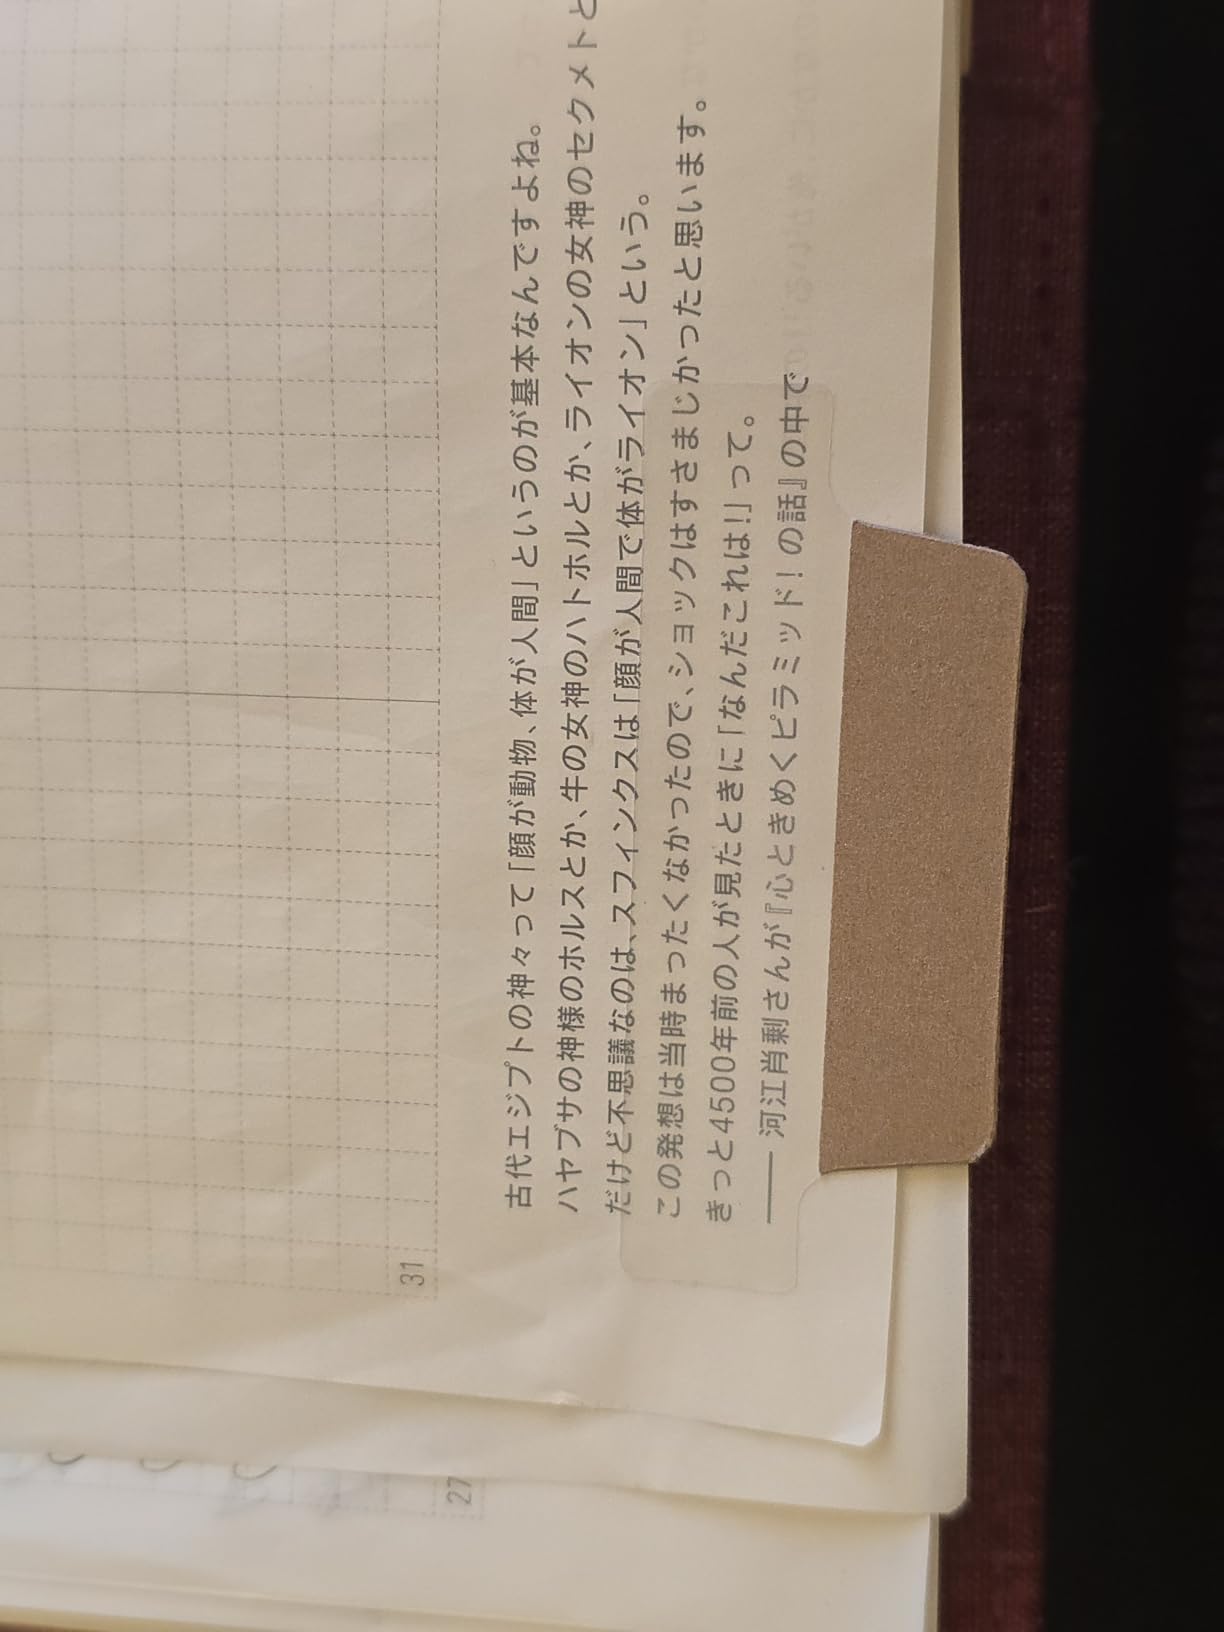 古代エジプトの神々って「顔が動物、体が人間」というのが基本なんですよね。
ハヤブサの神様のホルスとか、牛の女神のハトホルとか、ライオンの女神のセクメトと
だけど不思議なのは、スフィンクスは「顔が人間で体がライオン」という。
この発想は当時まったくなかったので、ショックはすさまじかったと思います。
きっと4500年前の人が見たときに「なんだこれは!」って。
── 河江肖剰さんが『心ときめくピラミッド!の話』の中で
31
27